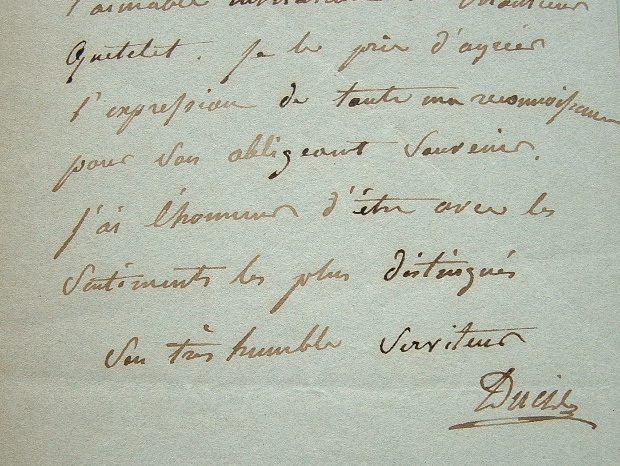 l'aimable invitation de Monsieur
Quetelet. je le prie d'agréer
l'expression de toute ma reconnoissance
pour son obligeant souvenir.
j'ai l'honneur d'être avec les
sentiments les plus distingués
son très humble serviteur
Ducis